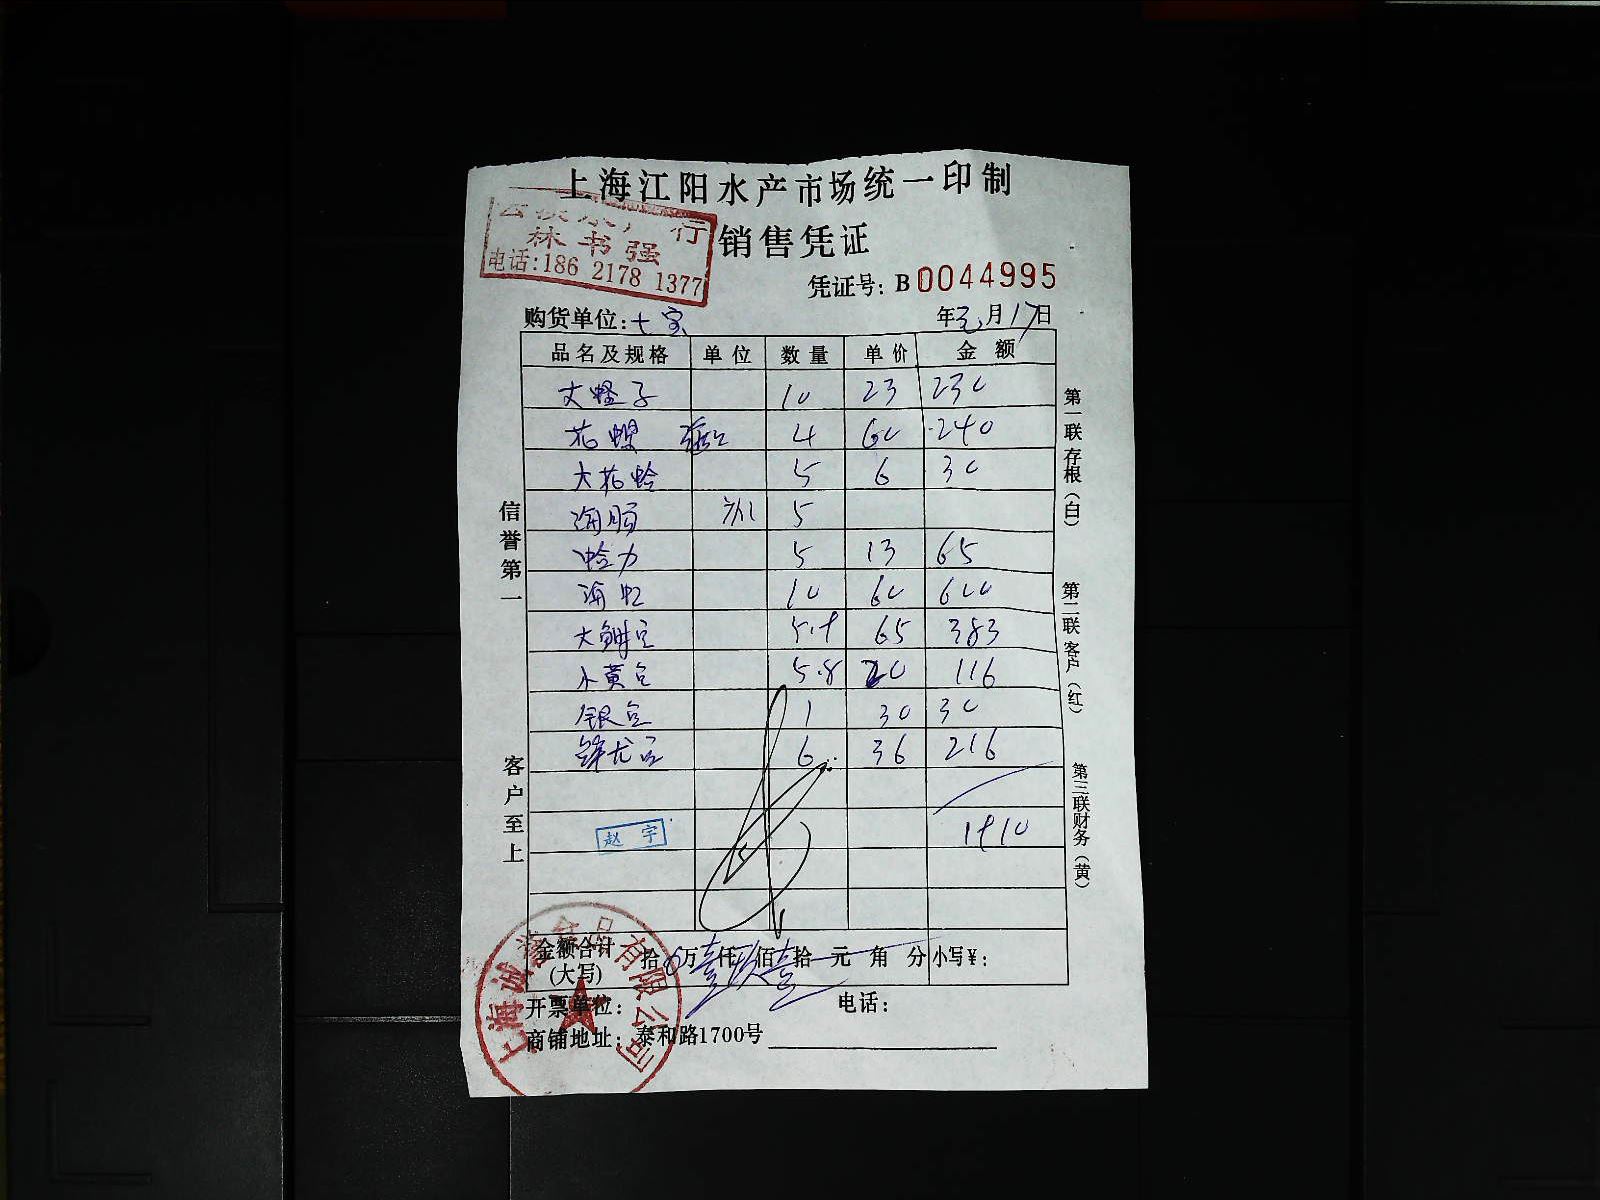 上海江阳水产市场统一印制
行
林书强
电话:186 2178 1377
销售凭证
凭证号: B 0044995
购货单位: 七宝
年 月17日
品名及规格 单位 数量 单价 金额
10 23 230
花螺 4 60 240
大花蛤 5 6 30
海肠 5
蛤力 5 13 65
海虹 10 60 600
5.9 65 383
小黄 5.8 20 116
银 1 30 30
6 36 216
1910
赵宇
金额合计 拾 万壹仟玖佰壹拾元角分 小写¥:
(大写)
开票单位: 电话:
商铺地址: 泰和路1700号
信誉第一
客户至上
第一联存根(白)
第二联客户(红)
第三联财务(黄)
上海诚 食品有限公司